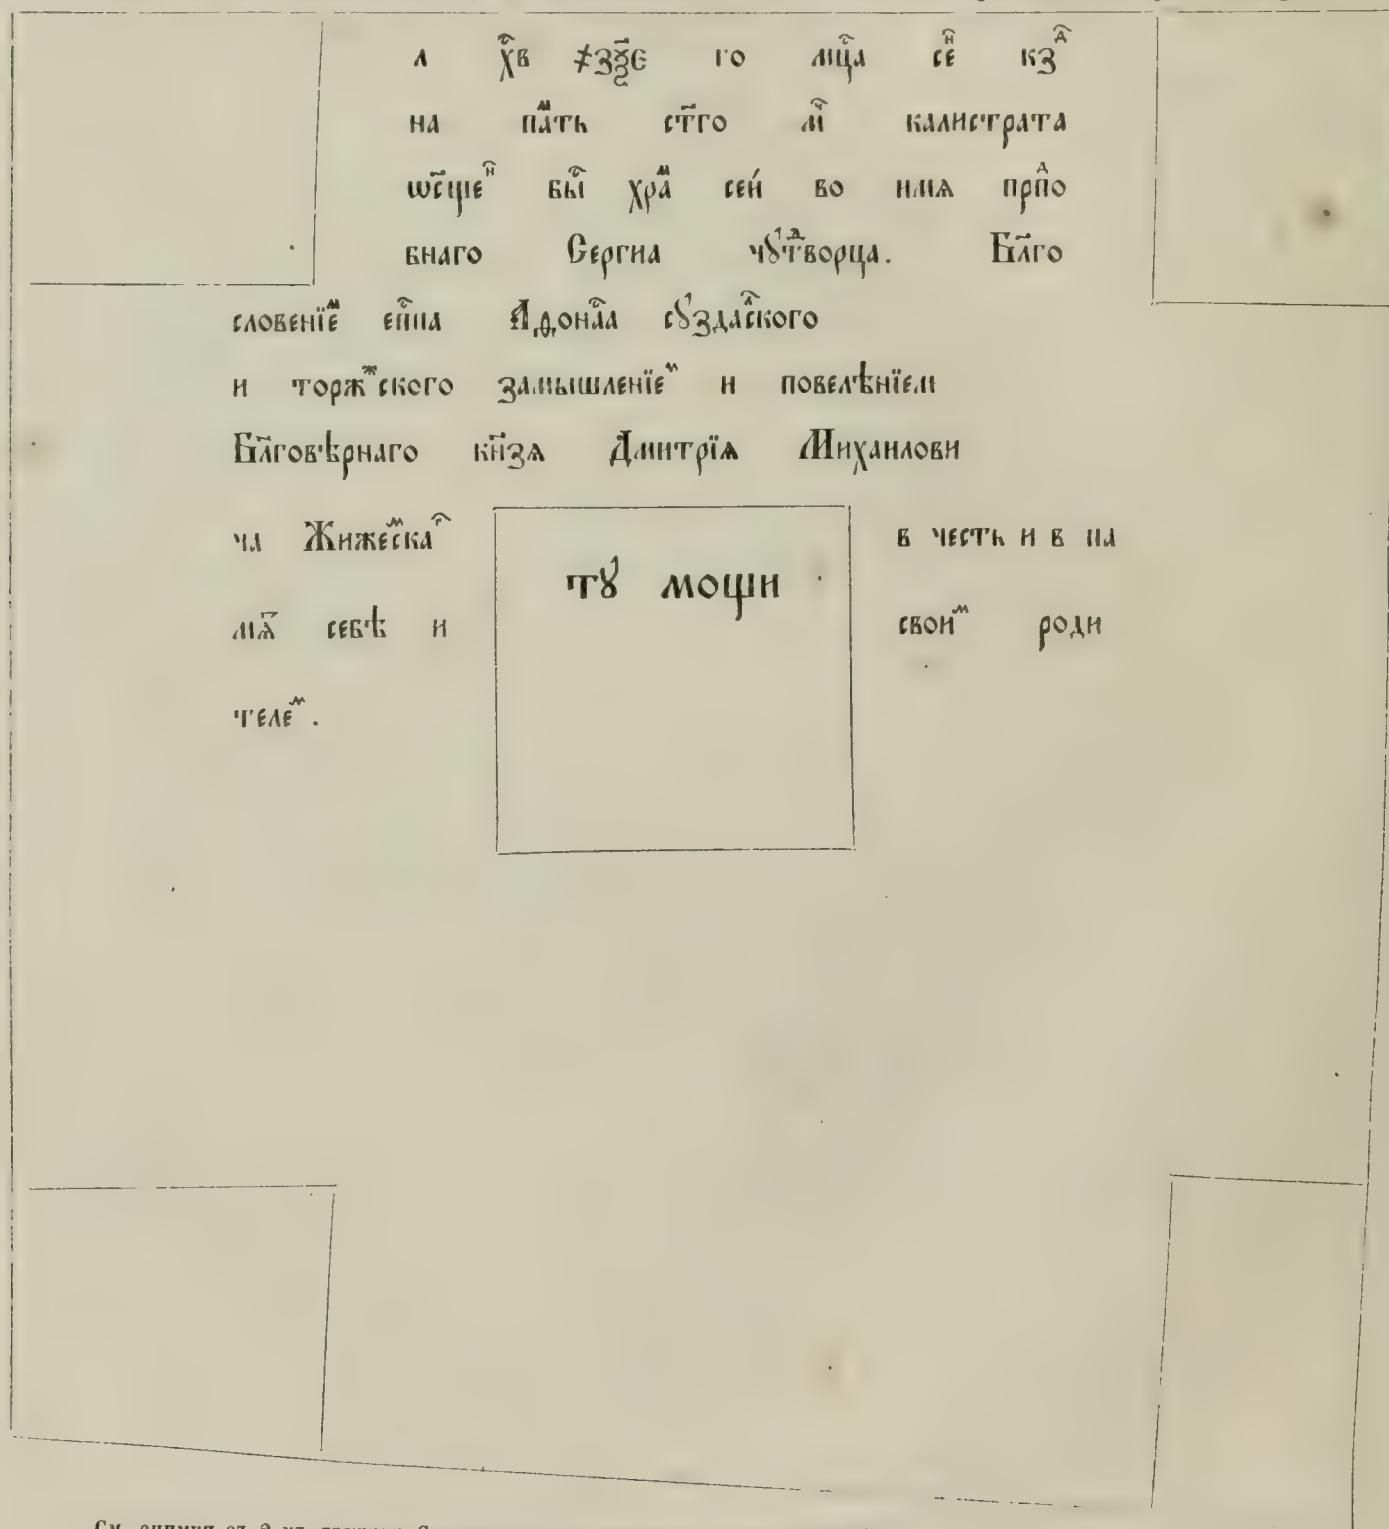 л х҃в ҂зѯ҃є го мц҃а се҃н кз҃д
на па҃мть ст҃го м҃ч калистрата
ѡс҃щен бы҃с хра҃м сеи́ во имѧ прп҃до
бнаго Сергиа чꙋт҃ворца. Бл҃го
словенїе҃м еп҃па Аѳона҃са сꙋзда҃лского
и торж҃ского замышленїем и повелѣнїем
Бл҃говѣрнаго кн҃зѧ Дмитрїѧ Михаилови
ча Жижемскаг в честь и в па
мѧ҃т себѣ и своим роди
телем.
тꙋ мощи